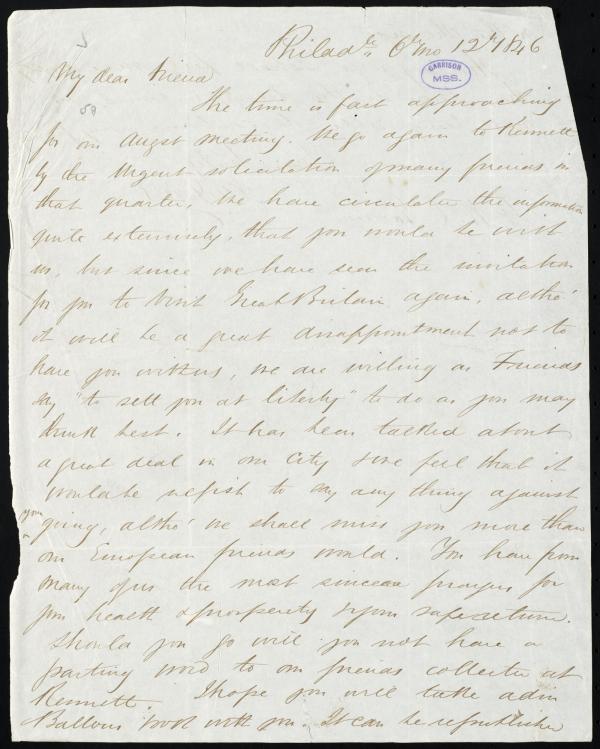 Philada. 6th mo 12th 1846
GARRISON
MSS.
My dear Friend
The time is fast approaching
for our Augst meeting. We go again to Kennett
by the urgent solicitation of many friends in
that quarter, We have circulated the information
quite extensively, that you would be with
us, but since we have seen the invitation
for you to visit Great Britain again, altho'
it will be a great disappointment not to
have you with us, we are willing as Friends
say "to sell you at liberty" to do as you may
think best. It has been talked about
a great deal in our City & we feel that it
would be selfish to say any thing against
your
going, altho' we shall miss you more than
our European friends would. You have from
many of us the most sincere prayers for
your health & prosperity & your safe return.
Should you go will you not have a
parting word to our friends collected at
Kennett. I hope you will take Adin
Ballous book with you. It can be republished